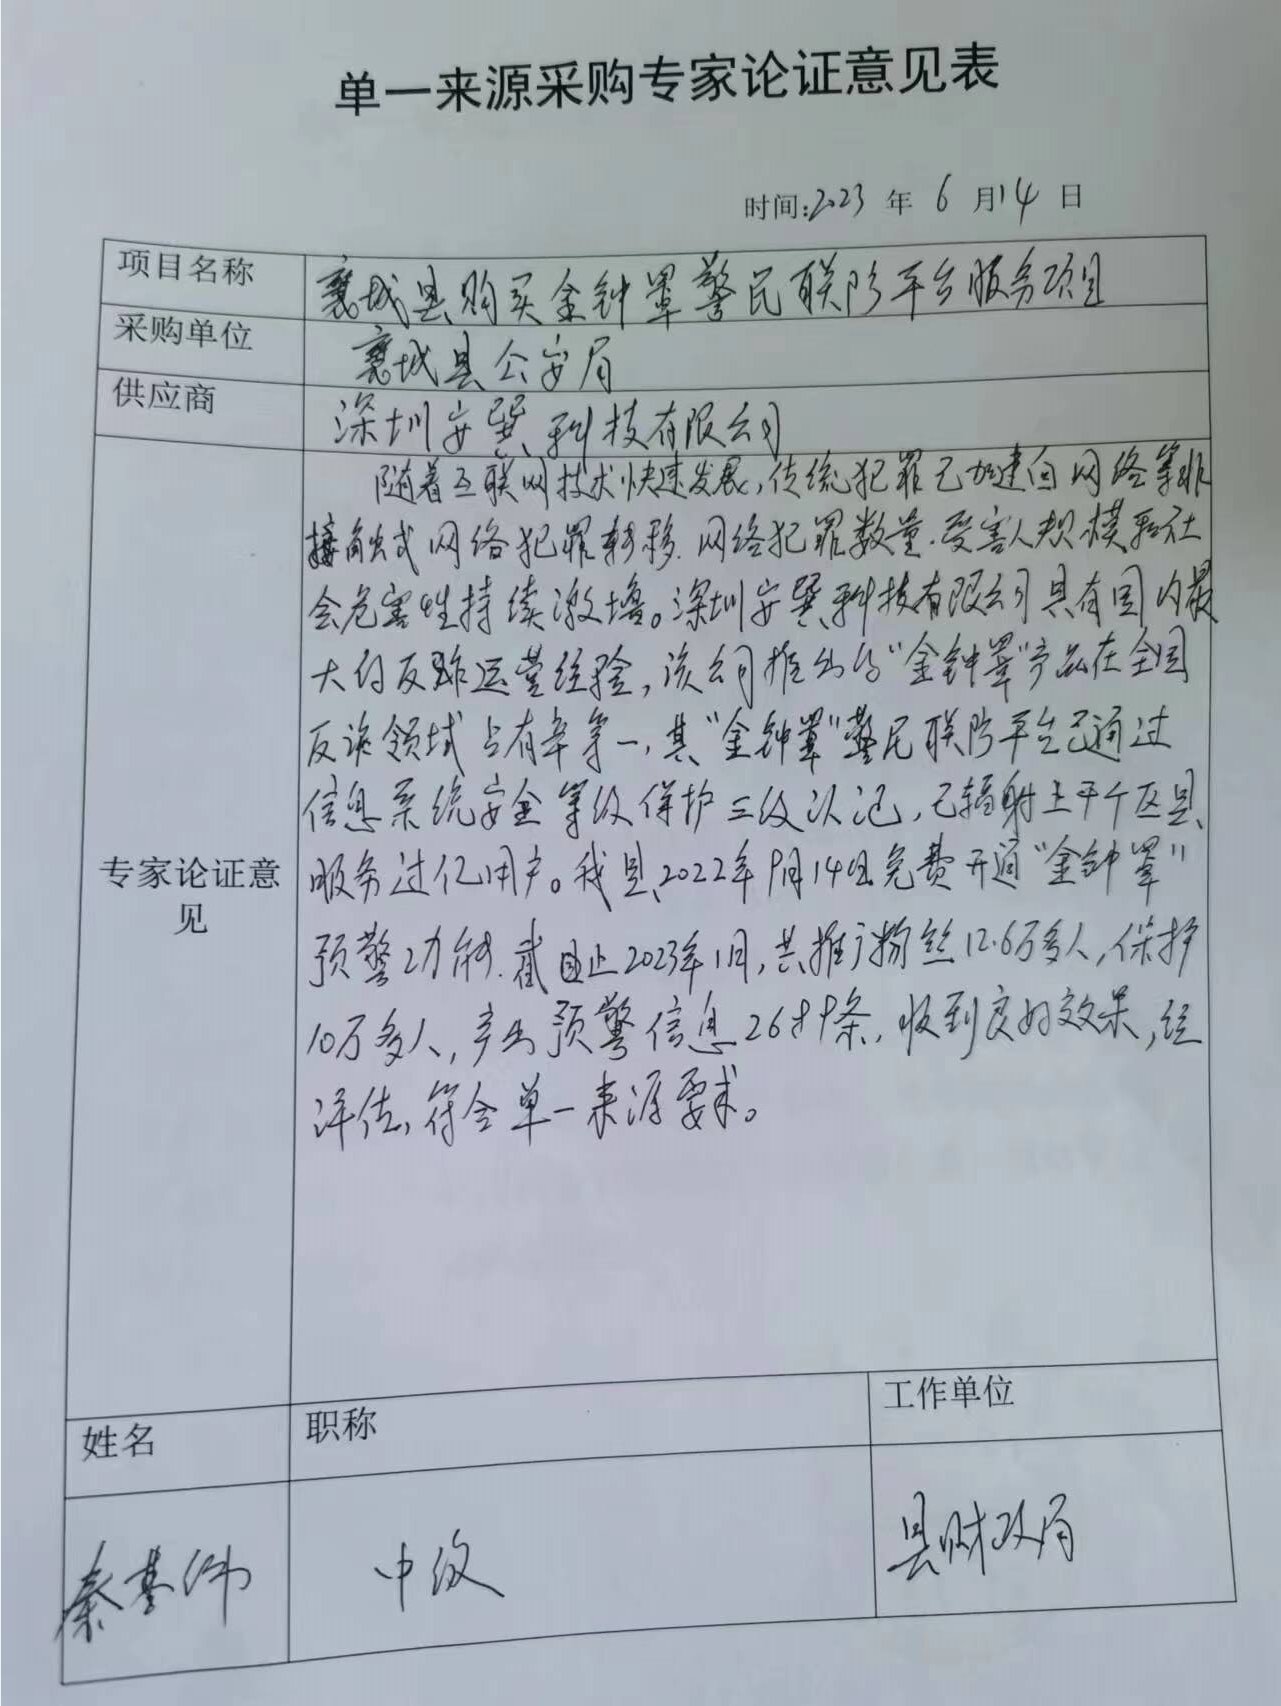 单一来源采购专家论证意见表
时间:2023 年 6 月14 日
项目名称
襄城县购买金钟罩警民联防平台服务项目
采购单位
襄城县公安局
供应商
深圳安巽科技有限公司
专家论证意
见
随着互联网技术快速发展,传统犯罪已加速向网络等非
接触式网络犯罪转移.网络犯罪数量.受害人规模和社
会危害性持续激增。深圳安巽科技有限公司具有国内最
大的反诈运营经验,该公司推出的“金钟罩”产品在全国
反诈领域占有率第一,其“金钟罩”警民联防平台已通过
信息系统安全等级保护三级认证,已辐射上千个区县,
服务过亿用户。我县2022年9月14日免费开通“金钟罩”
预警功能.截止2023年1月,共推广粉丝12.6万多人,保护
10万多人,产出预警信息2689条,收到良好效果,经
评估,符合单一来源要求。
姓名
职称
工作单位
秦基伟
中级
县财政局